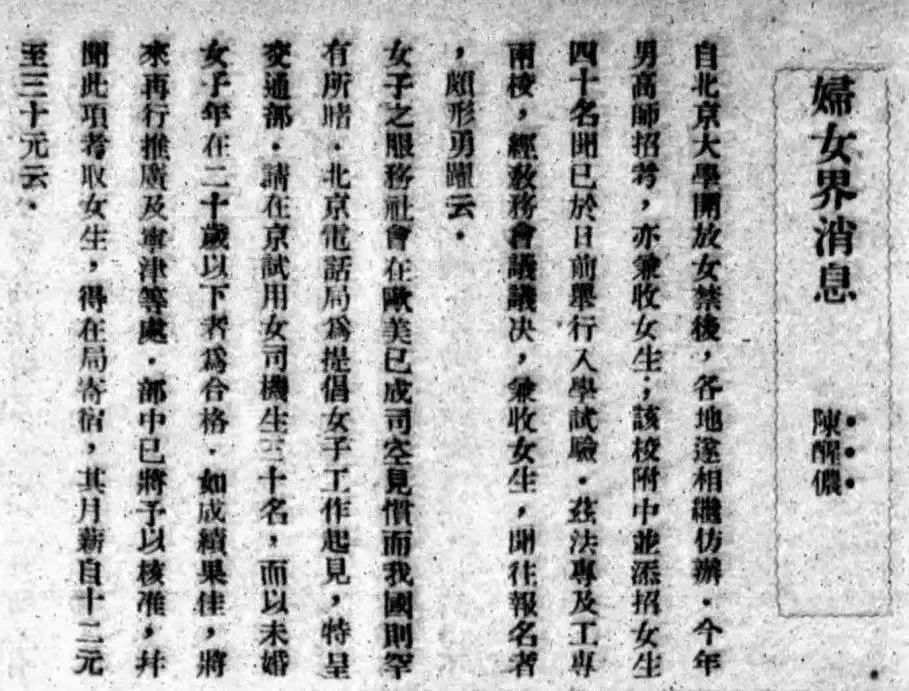 婦女界消息
陳醒儂
自北京大學開放女禁後，各地遂相繼仿辦．今年
男高師招考，亦兼收女生；該校附中並添招女生
四十名聞已於日前舉行入學試驗．茲法專及工專
兩校，經敎務會議議决，兼收女生，聞往報名者
，頗形勇躍云．
女子之服務社會在歐美已成司空見慣而我國則罕
有所睹．北京電話局爲提倡女子工作起見，特呈
交通部．請在京試用女司機生三十名，而以未婚
女子年在二十歲以下者爲合格．如成績果佳，將
來再行推廣及寧津等處．部中已將予以核准，幷
聞此項考取女生，得在局寄宿，其月薪自十二元
至三十元云．